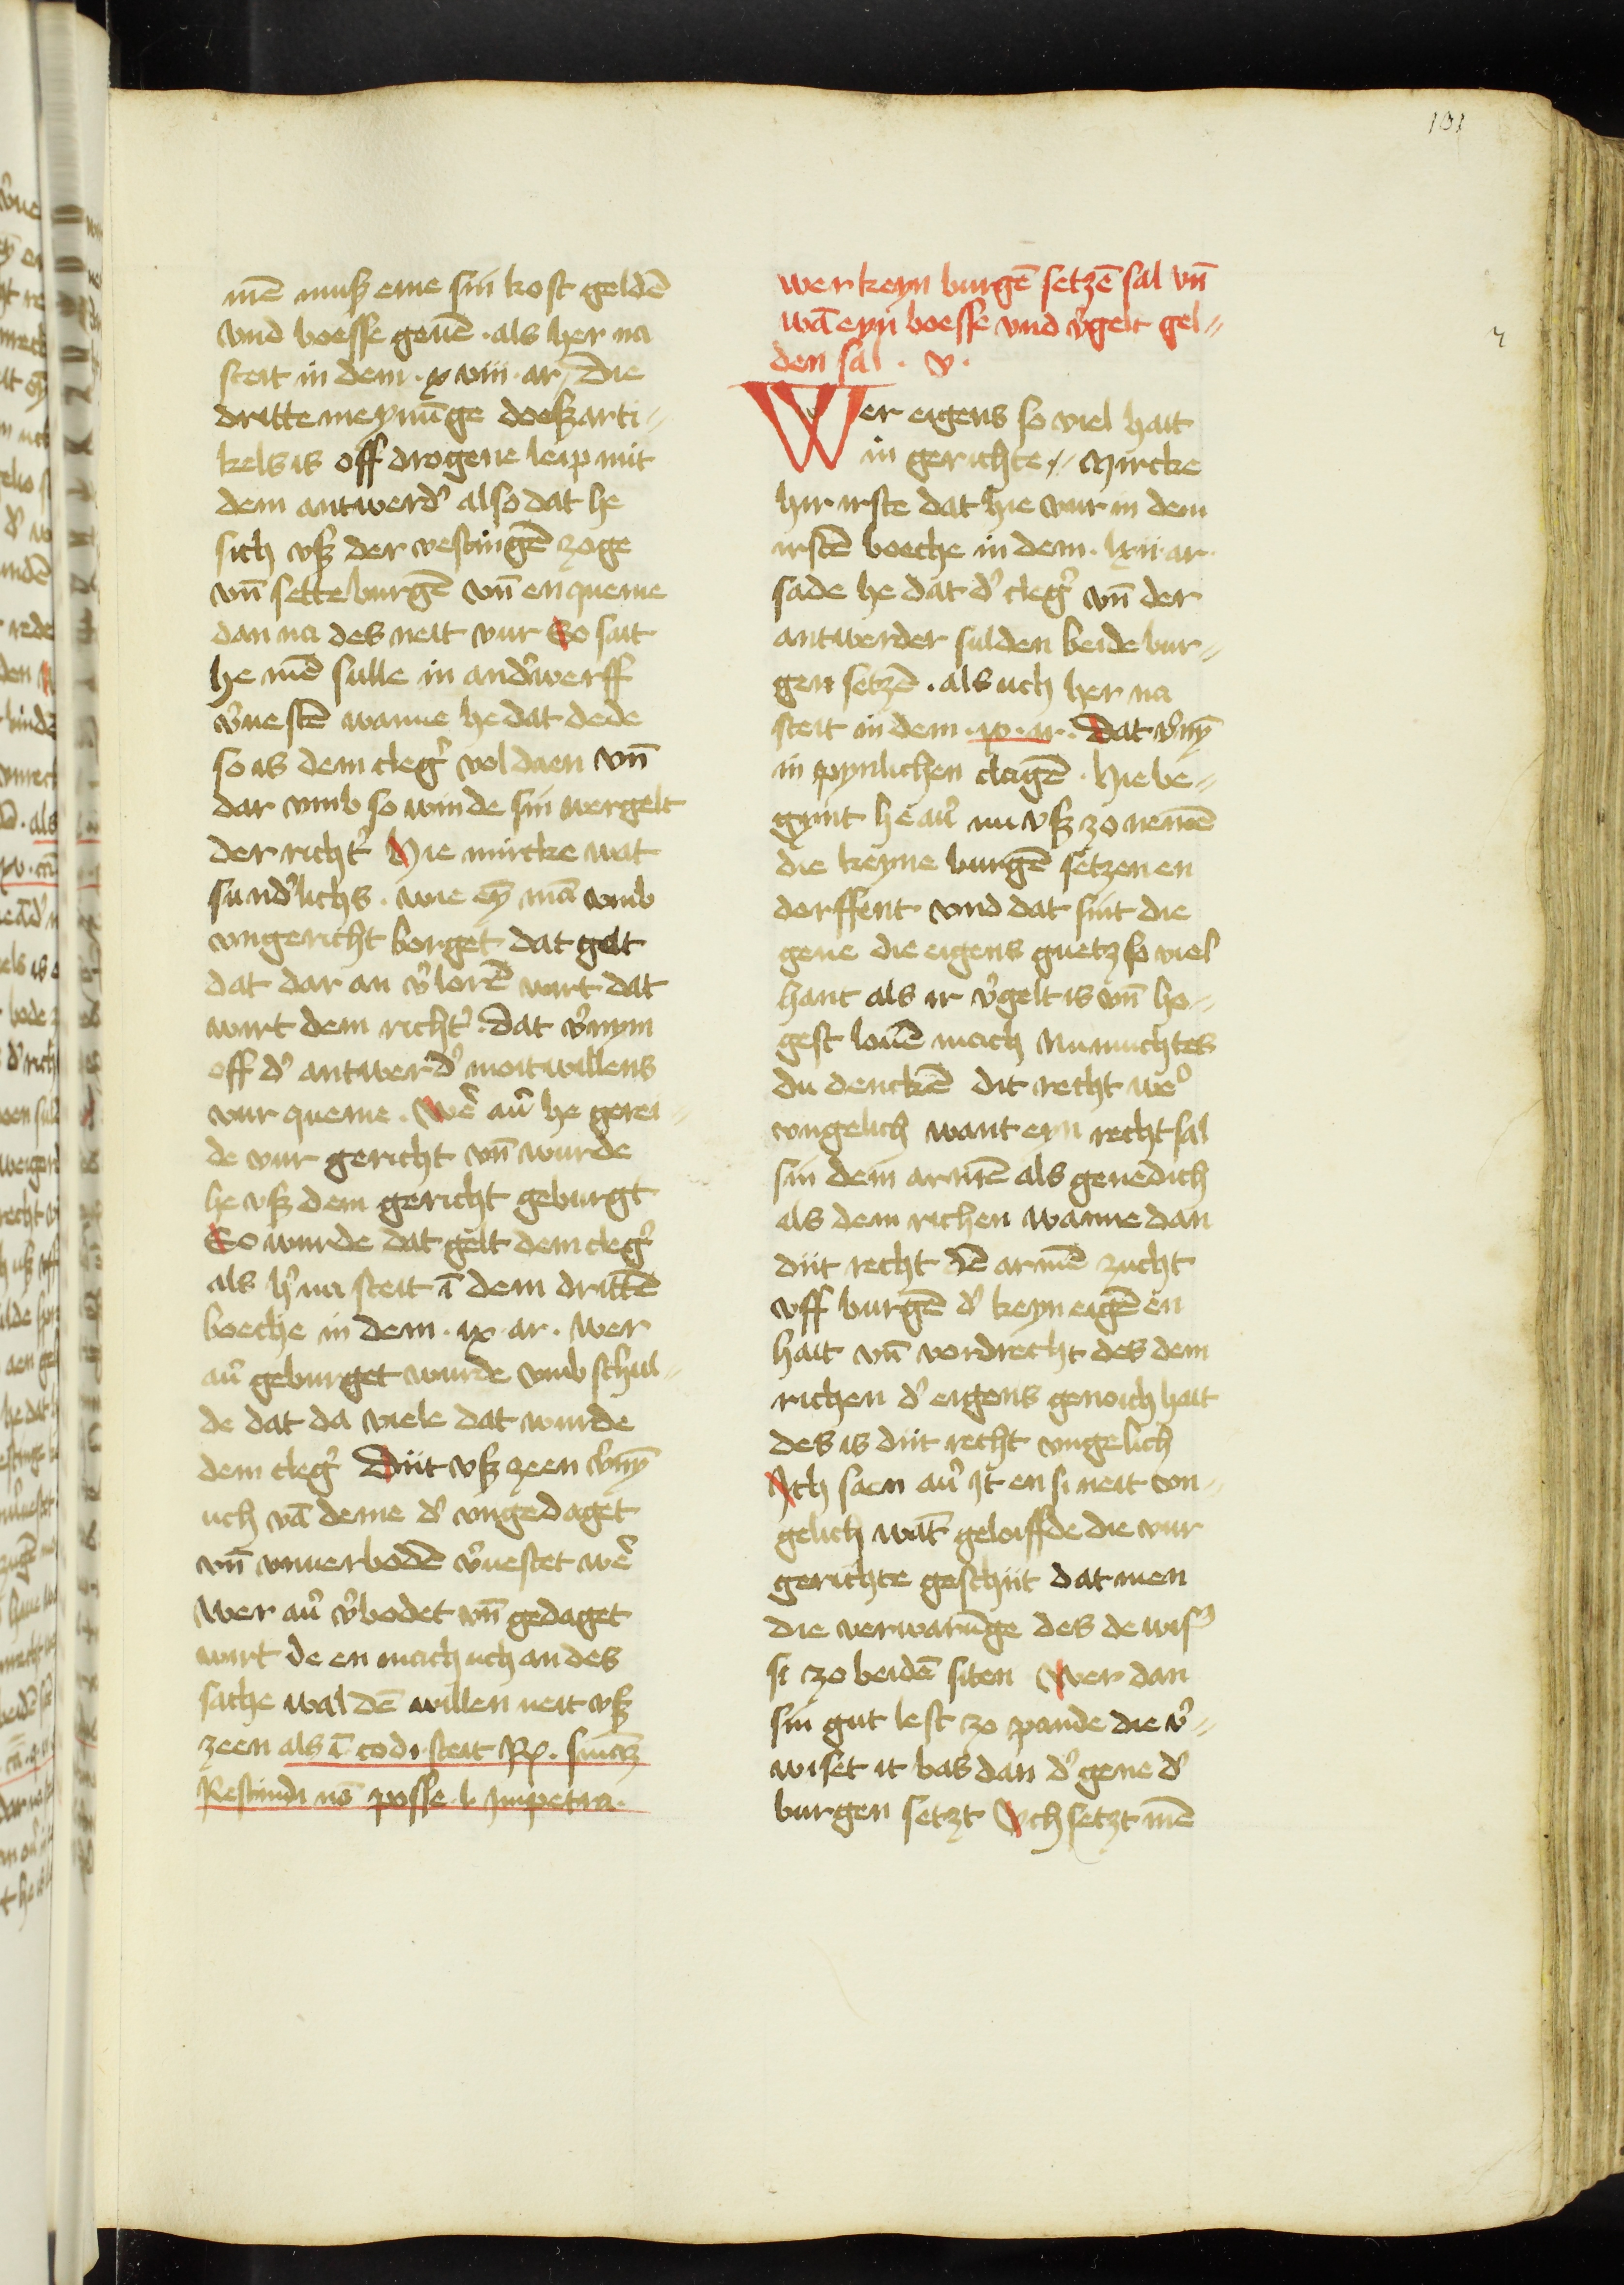 101
mē muß eme sin kost geldē
vnd boesse geuē . als her na
steit in dem . xviii . ar Die
dritte meynūge dosß arti-
kels is off drogene leip mit
dem antwerd' also dat he
sich vß der vestingē zoge
vn̄ sette burgē vn̄ en queme
dan na des neit vur So sait
he mē sulle in and'werff
v'uestē wanne he dat dede
so is dem cleg' voldaen vn̄
dar vmb so winde sin wergelt
der richt' Hie mircke wat
sund'lichs . wie eȳ mā vmb
vngericht borget dat gelt
dat dar an v'lorē wirt dat
wirt dem richt' . dat v'nym
off d' antwerd' moitwillens
vur queme . Wē au' he gerei-
de vur gericht vn̄ wurde
he vß dem gericht geburgt
So wurde dat gelt dem cleg'
als h' na steit ī dem drittē
boeche in dem . ix . ar . wer
au' geburget wurde vmb schul-
de dat da viele dat wurde
dem cleg' Diit vß zeen v'nȳ
uch vā deme d' vngedaget
vn̄ vnuerbodē v'uestet wē
Wer au' v'bodet vn̄ gedaget
wirt de en mach uch an des
sache waldē willen neit vß
zeen als ī codi steit Rx .
Rescindi nō posse . l . Impetra .
wer keyn burgē setzē sal vn̄
wā eyn boesse vnd v'gelt gel-
den sal . v .
Wer eigens so viel hait
in gerichte Mircke
hir irste dat hie vur in dem
irstē boeche in dem . lxii . ar .
sade he dat d' cleg' vn̄ der
antwerder sulden beide bur-
gen setzē . als uch her na
steit in dem . ix . ar . Dat v'nȳ
in pynlichen clagē . Hie be-
gynt he au' nu vß zo nemē
die keyne burgē setzen en
dorffent vnd dat sint die
gene die eigens guetz so viel
hant als ir v'gelt is vn̄ ho-
gest louē mach Nu muchtes
du denckē dit recht we'
vngelich want eyn recht sal
sin dem armē als genedich
als dem richen wanne dan
diit recht dē armē zucht
vff burgē d' keyn eigē en
hait vn̄ vordrecht des dem
richen d' eigens genoich hait
des is diit recht vngelich
Ich saen au' It en si neit vn-
gelich wāt geloiffde die vur
gerichte geschiit dat men
die verwarūge des de wis'
si zo beidē siten Wer dan
sin gut lest zo pande die v'-
wiset it bas dan d' gene d'
burgen setzt Uch setzt mē